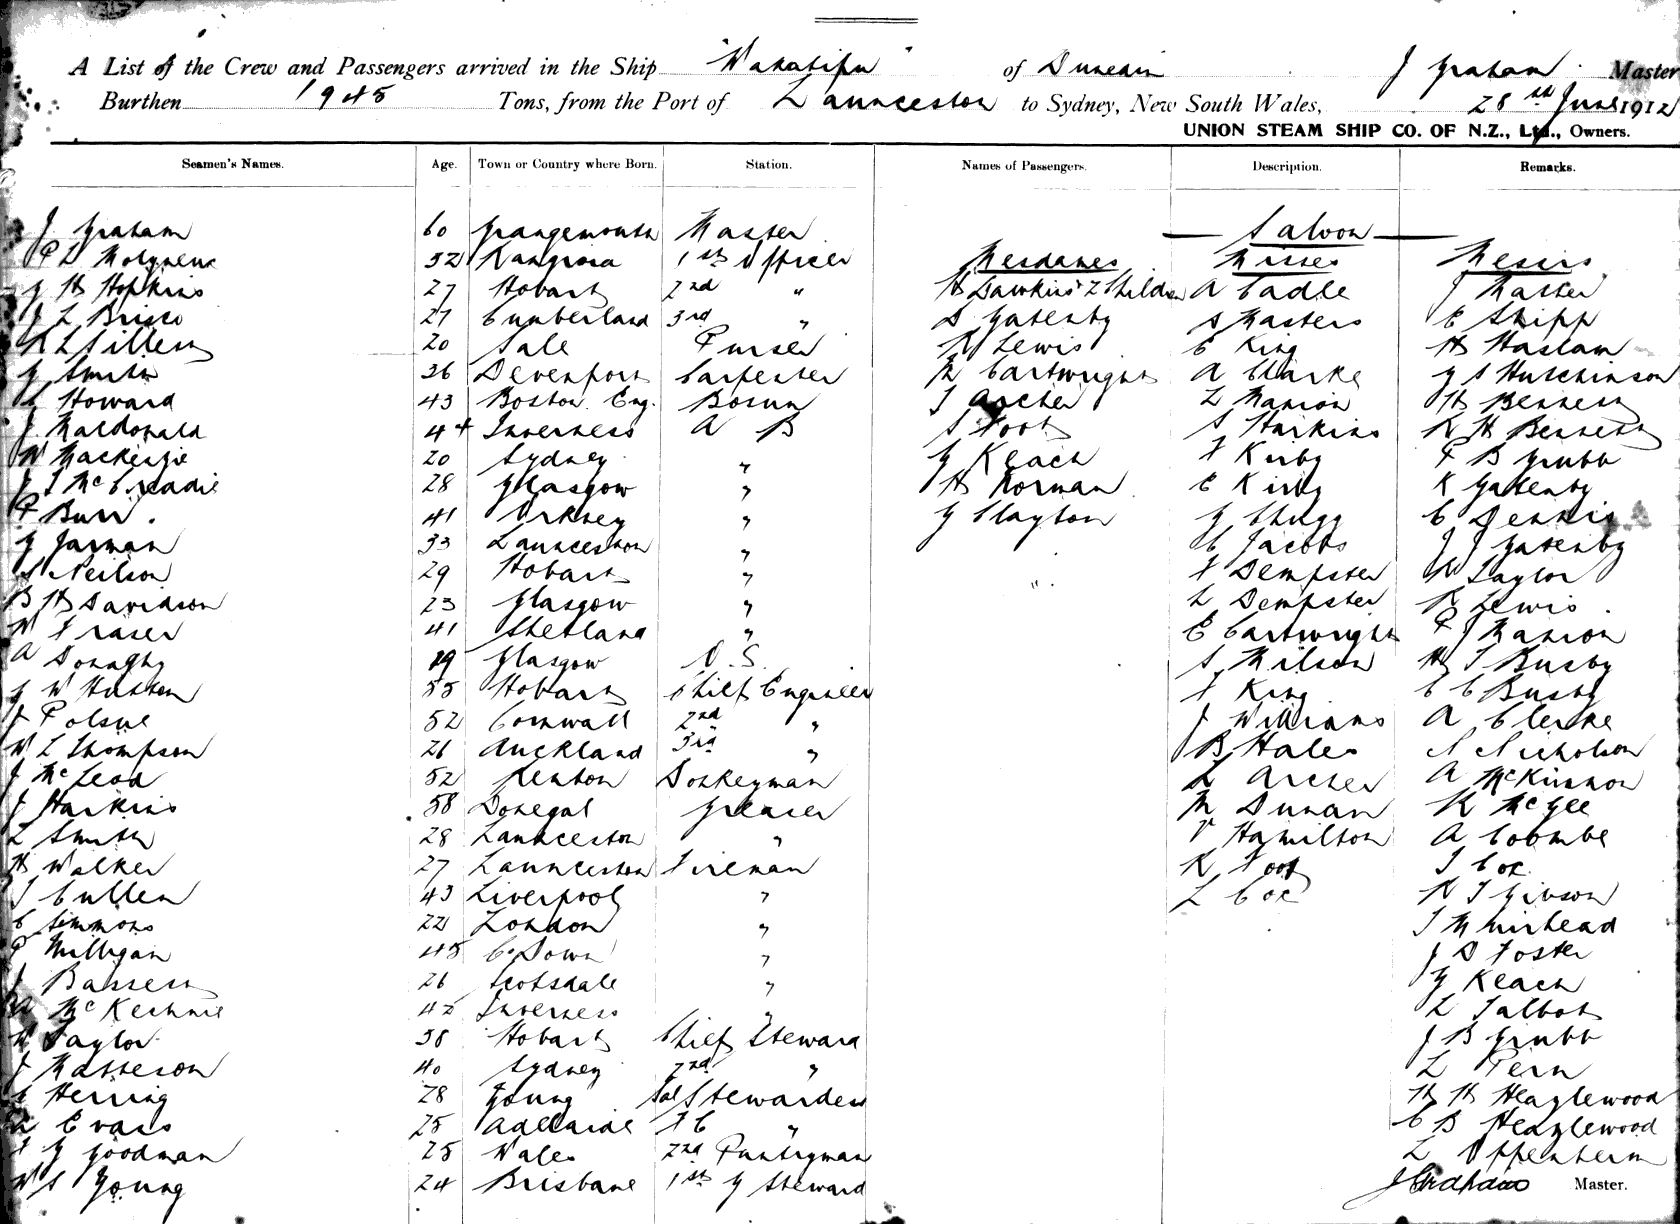 A List of the Crew and Passengers arrived in the Ship "Wakatipu" of Dunedin J Graham Master
Burthen 1945 Tons, from the Port of Launceston to Sydney, New South Wales, 28th June 1912
UNION STEAM SHIP CO. OF N.Z., Ltd., Owners.
Seamen's Names. Age. Town or Country where Born. Station. Names of Passengers. Description. Remarks.
J Graham 60 Grangemouth Master Saloon
52 Rangiora 1st Officer Mesdames Misses Messrs
G H Hopkins 27 Hobart 2nd " H Dawkins & 2 Children A Cadle J Master
27 Cumberland 3rd " S Gatenby S Masters E Shipp
20 Sale Purser R Lewis E King H Haslam
G Smith 36 Devonport Carpenter M Cartwright A Clarke G S Hutchinson
S Howard 43 Boston Eng. Bosun J Archer L Manion H Bennett
J Macdonald 44 Inverness A B S Foot S Harkins R H Bennett
W Mackenzie 20 Sydney " G Keach F Kirby P B Grubb
G J McCreadie 28 Glasgow " H Norman E Kirby K Gatenby
P Burr. 41 Orkney " G Clayton G Chugg C Dennis
G Jarman 33 Launceston " C Jacobs J J Gatenby
S Neilson 29 Hobart " F Dempster W Taylor
B H Davidson 23 Glasgow " L Dempster R Lewis.
W Fraser 41 Shetland " E Cartwright P J Manion
A Donaghy 19 Glasgow O.S. S Wilson H J Busby
G W Hutton 55 Hobart Chief Engineer F King C C Busby
J Polsue 52 Cornwall 2nd " J Williams A Clerke
W L Thompson 26 Auckland 3rd " B Hales N Nicholson
J McLeod 52 Renton Donkeyman L Archer A McKinnon
J Harkins 58 Donegal Greaser M Duncan R McGee
L Smith 28 Launceston " V Hamilton A Coombe
H Walker 27 Launceston Fireman R Foot J Cox
J Cullen 43 Liverpool " L Cox R J Gibson
C Simmons 22 London " J Muirhead
P Milligan 45 Co Down " J D Foster
J Bassett 26 Scotsdale " G Keach
McKechnie 42 Inverness " L Talbot
W Taylor 38 Hobart Chief Steward J B Grubb
J Matteson 40 Sydney 2nd " L Fern
C Herring 28 Young Sal Stewardess H H Heazlewood
Evans 25 Adelaide F C " C B Heazlewood
F G Goodman 25 Wales 2nd Pantryman L Oppenheim
W S Young 24 Brisbane 1st G Steward J Graham Master.